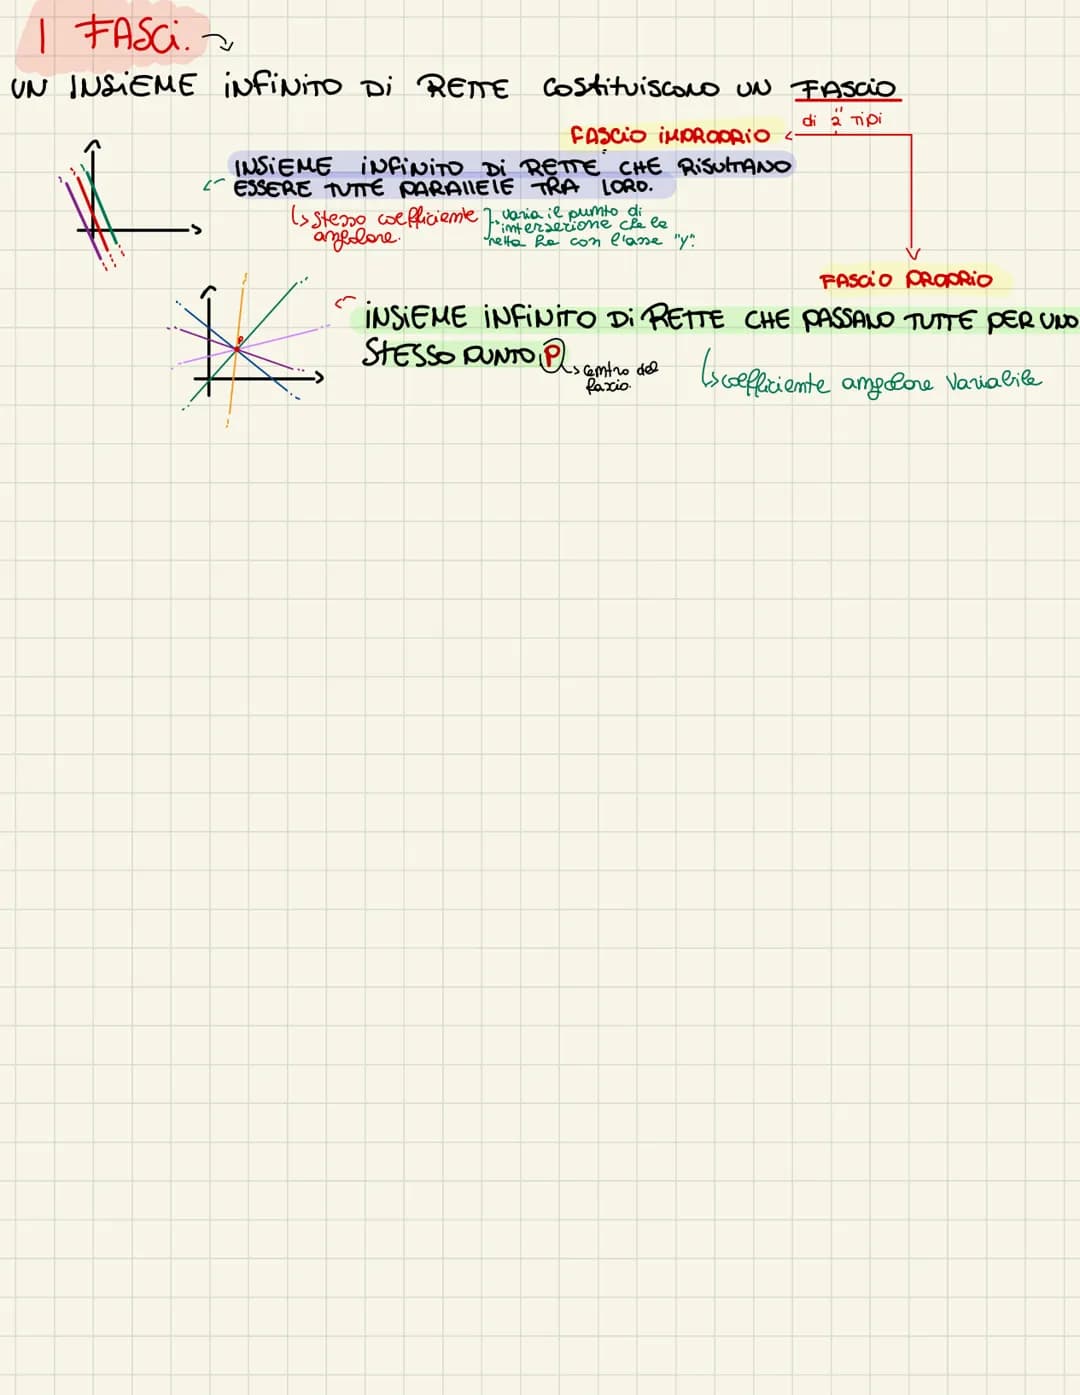 I FASCI.
UN INSIEME INFINITO DI RETTE COSTITUISCONO UN FASCIO
di "2" TIPI
FASCIO IMPROPRIO
INSIEME INFINITO DI RETTE CHE RISULTANO
ESSERE TUTTE PARALLELE TRA LORO.
stesso coefficiente
angolare.
varia il punto di
intersezione che la
retta ha con l'asse "y".
FASCIO PROPRIO
INSIEME INFINITO DI RETTE CHE PASSANO TUTTE PER UNO
STESSO PUNTO P
centro del
fascio.
coefficiente angolare variabile
P